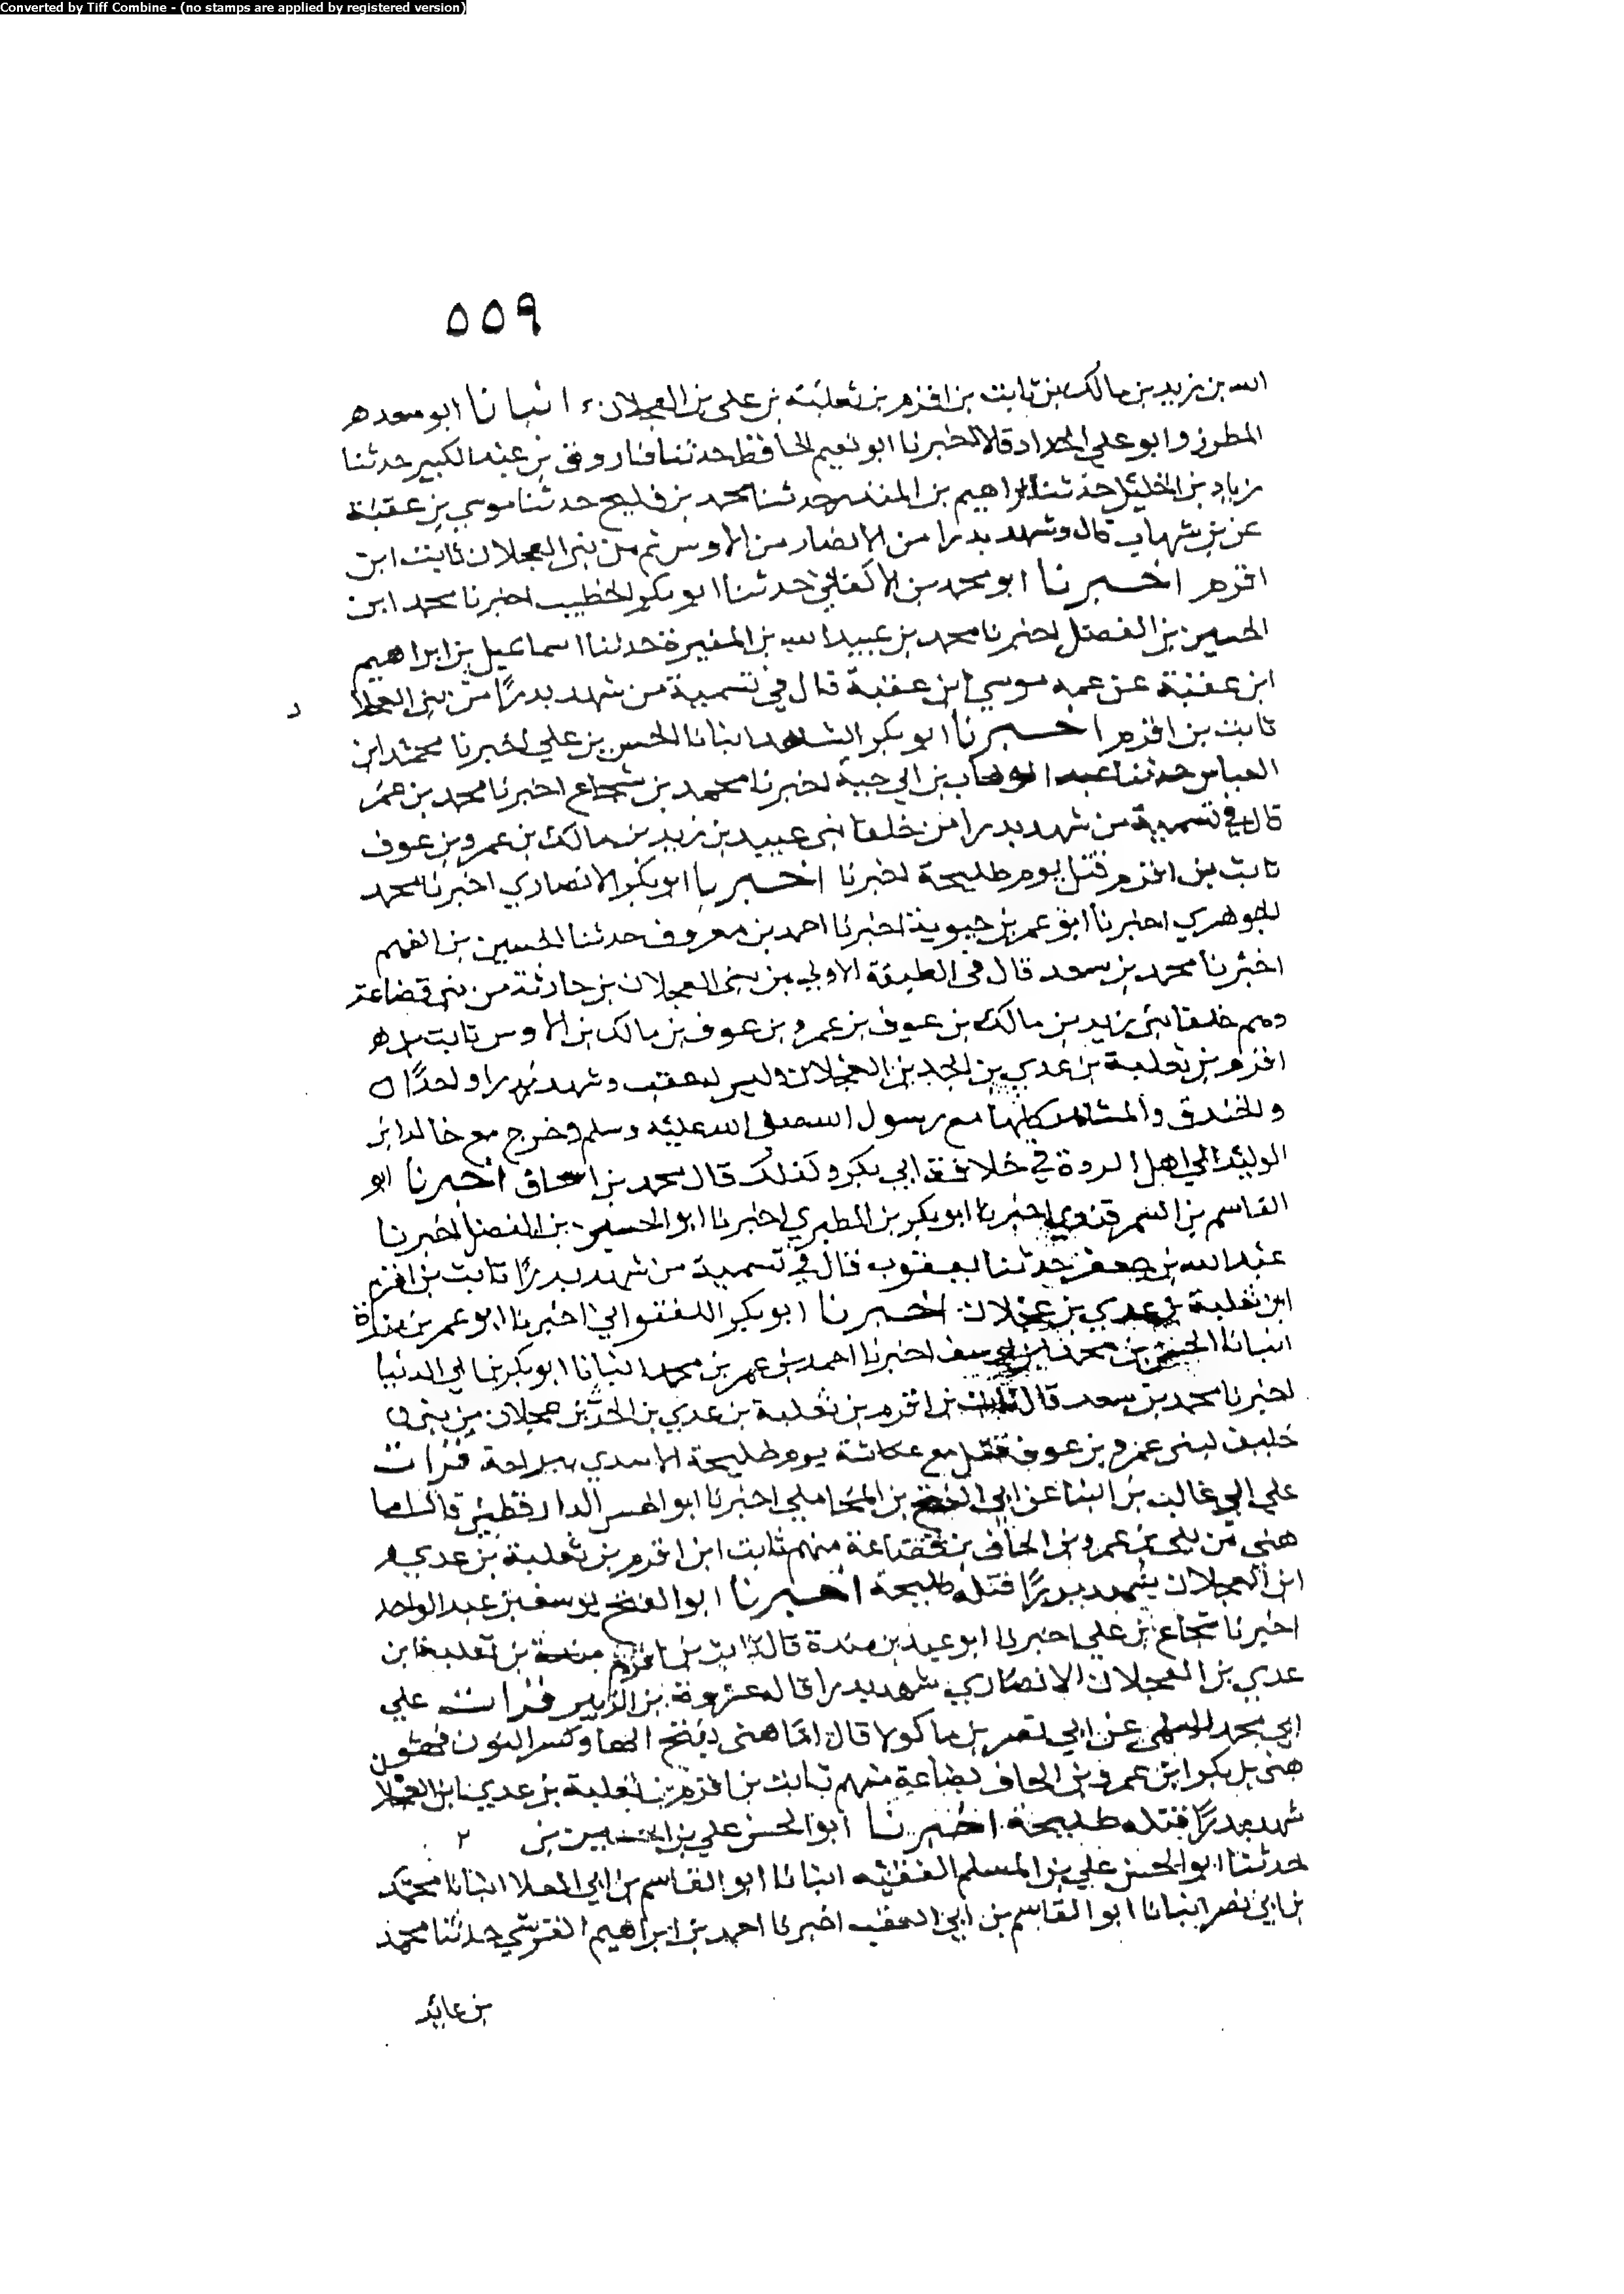 Converted by Tiff Combine - (no stamps are applied by registered version)
٥٥٩
الله بن يزيد بن مالك بن ثابت بن اقرم بن ثعلبة بن علي بن العجلان انبانا ابو سعد
المطرز وابو علي الحداد قالا اخبرنا ابو نعيم الحافظ حدثنا فاروق بن عبد الكبير حدثنا
زياد بن الخليل حدثنا ابراهيم بن المنذر حدثنا محمد بن فليح حدثنا موسي بن عقبة
عن بن شهاب قال وشهد بدرا من الانصار من الاوس ثم من بني العجلان ثابت ابن
اقرم اخبرنا ابو محمد بن الاكفاني حدثنا ابو بكر الخطيب اخبرنا محمد ابن
الحسين بن الفضل اخبرنا محمد بن عبيد الله بن المغيرة حدثنا اسماعيل بن ابراهيم
ابن عقبة عن عمه موسي ابن عقبة قال في تسمية من شهد بدرًا من بني العجلا
ثابت بن اقرم اخبرنا ابو بكر الشاهد انبانا الحسن بن علي اخبرنا محمد ابن
العباس حدثنا عبد الوهاب بن ابي حية اخبرنا محمد بن شجاع اخبرنا محمد بن عمر
قال في تسمية من شهد بدرا من خلفا بني عبيد بن زيد بن مالك بن عمرو بن عوف
ثابت بن اقرم قتل يوم طليحة اخبرنا اخبرنا ابو بكر الانصاري اخبرنا محمد
الجوهري اخبرنا ابو عمر بن حيوية اخبرنا احمد بن معروف حدثنا الحسين بن الفهم
اخبرنا محمد بن سعد قال في الطبقة الاولي من بني العجلان بن حارثة من بني قضاعة
وهم خلفا بني زيد بن مالك بن عوف بن عمرو بن عوف بن مالك بن الاوس ثابت بن
اقرم بن ثعلبة بن عدي بن الجد بن العجلان وليس له عقب وشهد بدرا واحدًا
والخندق والمشاهد كلها مع رسول الله صلى الله عليه وسلم وخرج مع خالد بن
الوليد الي اهل الردة في خلافة ابي بكر وكذلك قال محمد بن اسحاق اخبرنا ابو
القاسم بن السمرقندي اخبرنا ابو بكر بن الطبري اخبرنا ابو الحسين بن الفضل اخبرنا
عبد الله بن جعفر حدثنا يعقوب قال في تسمية من شهد بدرًا ثابت بن اقرم
ابن ثعلبة بن عدي بن عجلان اخبرنا ابو بكر اللفتواني اخبرنا ابو عمر بن مندة
انبانا الحسن بن محمد بن يوسف اخبرنا احمد بن عمر بن محمد انبانا ابو بكر بن ابي الدنيا
اخبرنا محمد بن سعد قال ثابت بن اقرم بن ثعلبة بن عدي بن الجد بن عجلان من بني
خليف لبني عمرو بن عوف قتل مع عكاشة يوم طليحة الاسدي ببزاحة قرات
علي ابي غالب بن البنا عن ابي الفتح بن المحاملي اخبرنا ابو الحسن الدارقطني قال اما
هني من بلي بن عمرو بن الحاف بن قضاعة منهم ثابت ابن اقرم بن ثعلبة بن عدي
ابن العجلان شهد بدرًا قتله طليحة اخبرنا ابو الفتح يوسف بن عبد الواحد
اخبرنا شجاع بن علي اخبرنا ابو عبد بن مندة قال ثابت بن اقرم بن ثعلبة ابن
عدي بن العجلان الانصاري شهد بدرا قاله عروة بن الزبير قرات علي
ابي محمد السلمي عن ابي نصر بن ماكولا قال اما هني بفتح الها وكسر النون فهو
هني بن بكر ابن عمرو بن الحاف بضاعة منهم ثابت بن اقرم بن ثعلبة بن عدي ابن العجلا
شهد بدرًا قتله طليحة اخبرنا ابو الحسن علي بن الحسين بن ٢
حدثنا ابو الحسن علي بن المسلم الفقيه انبانا ابو القاسم بن ابي العلا انبانا محمد
بن ابي نصر انبانا ابو القاسم بن ابي العقب اخبرنا احمد بن ابراهيم القرشي حدثنا محمد
بن عايد